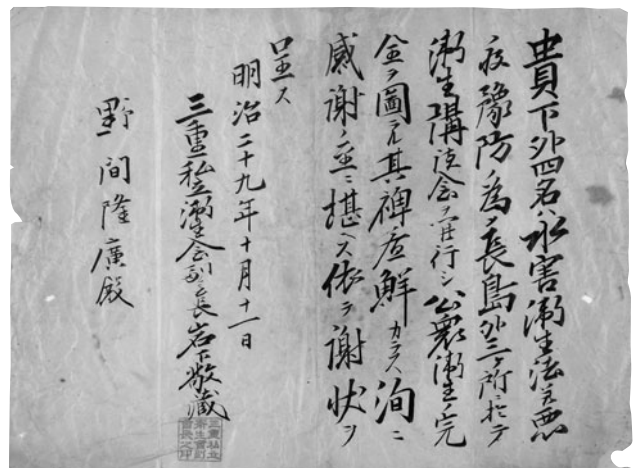 貴下外四名ハ水害衛生法并悪
疫豫防ノ為メ長島外三ヶ所ニ於テ
衛生講談会ヲ開行シ公衆衛生ノ完
全ヲ圖ル其裨益鮮カラス洵ニ
感謝ノ至ニ堪ヘス依テ謝状ヲ
呈ス
明治二十九年十月十一日
三重私立衛生会副会長岩下敬蔵
野間隆廣殿
三重私立
衛生會副
會長之印